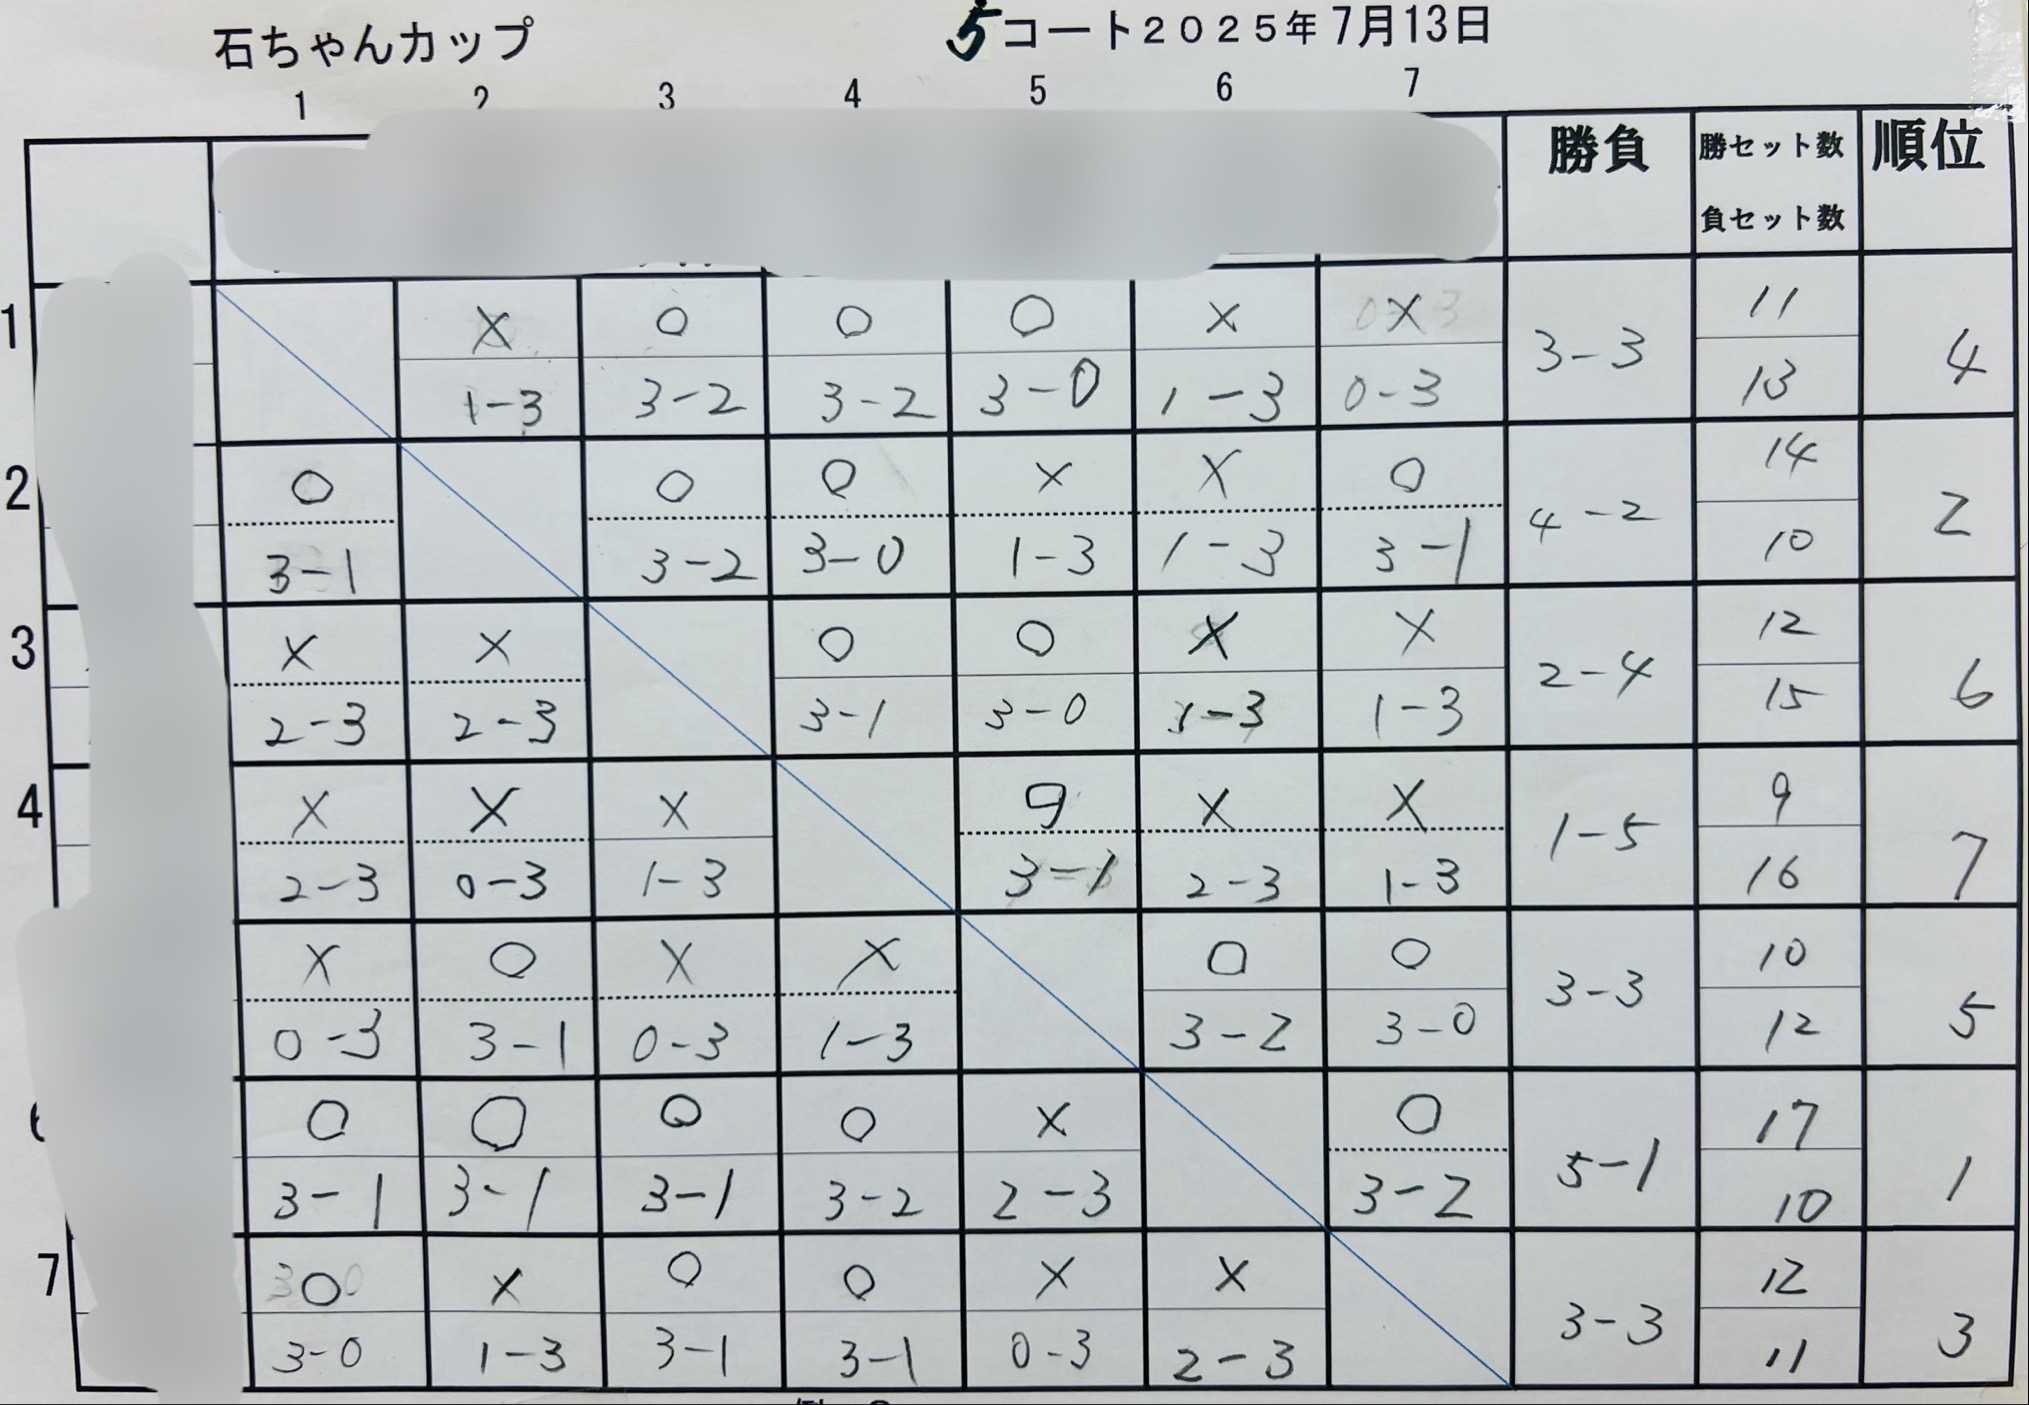 石ちゃんカップ 5コート2025年7月13日
1 2 3 4 5 6 7
勝負 勝セット数 順位
負セット数
1 × ○ ○ ○ × × 3-3 11 4
1-3 3-2 3-2 3-0 1-3 0-3 13
2 ○ ○ ○ × × ○ 4-2 14 2
3-1 3-2 3-0 1-3 1-3 3-1 10
3 × × ○ ○ × × 2-4 12 6
2-3 2-3 3-1 3-0 1-3 1-3 15
4 × × × ○ × × 1-5 9 7
2-3 0-3 1-3 3-1 2-3 1-3 16
× ○ × × ○ ○ 3-3 10 5
0-3 3-1 0-3 1-3 3-2 3-0 12
6 ○ ○ ○ ○ × ○ 5-1 17 1
3-1 3-1 3-1 3-2 2-3 3-2 10
7 ○ × ○ ○ × × 3-3 12 3
3-0 1-3 3-1 3-1 0-3 2-3 11